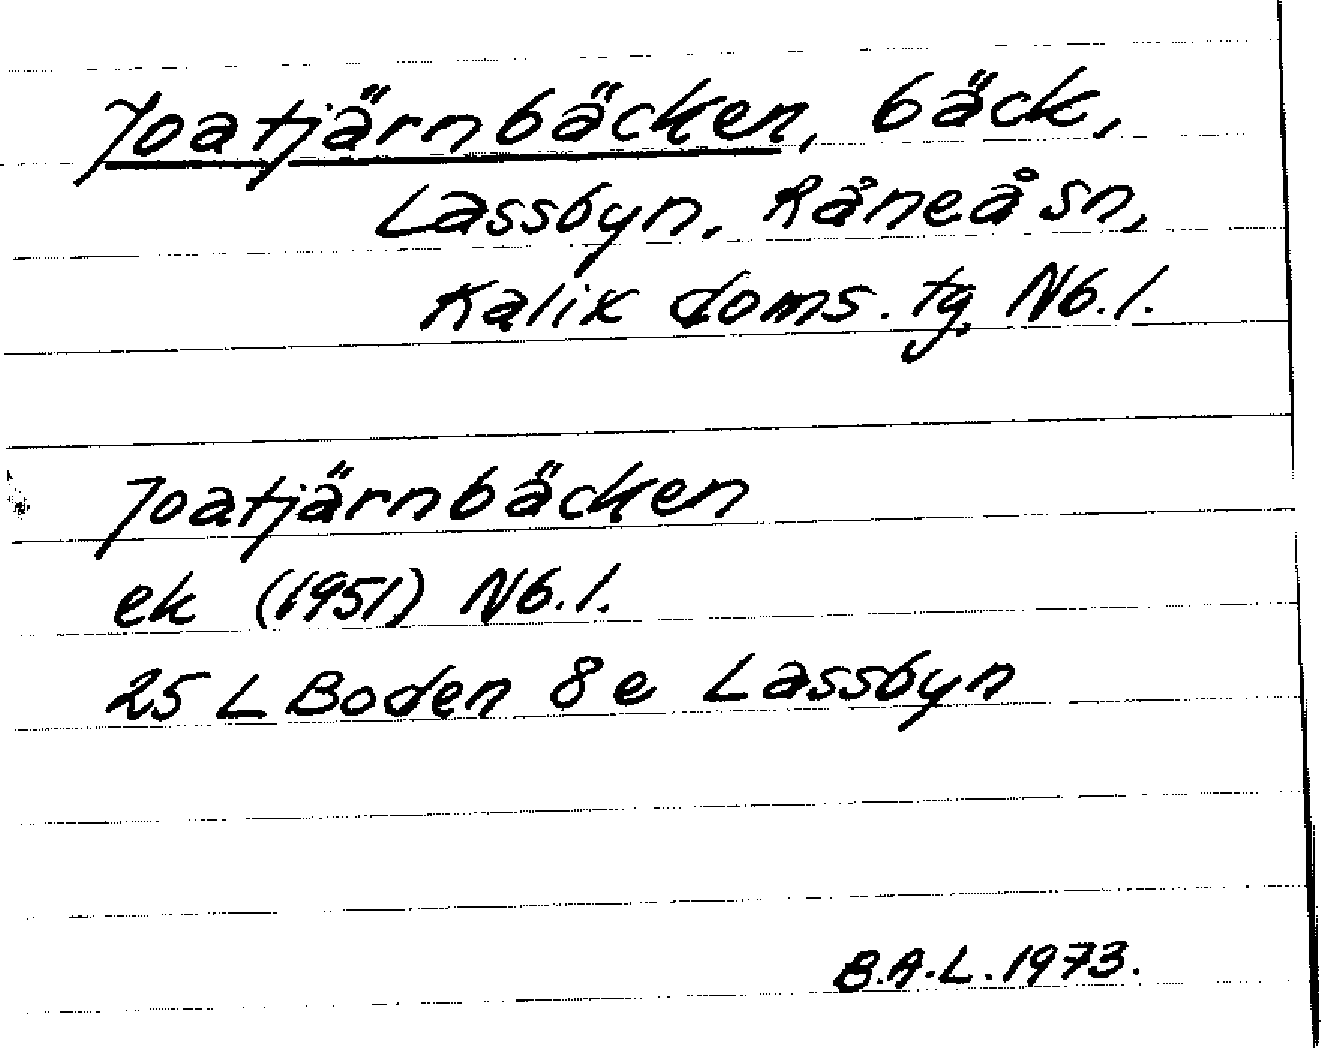 Joatjärnbäcken, bäck,
Lassbyn, Råneå sn,
Kalix doms. tg Nb. l.
Joatjärnbäcken
ek (1951) Nb. l.
25 L Boden 8 e Lassbyn
B.A.L. 1973.